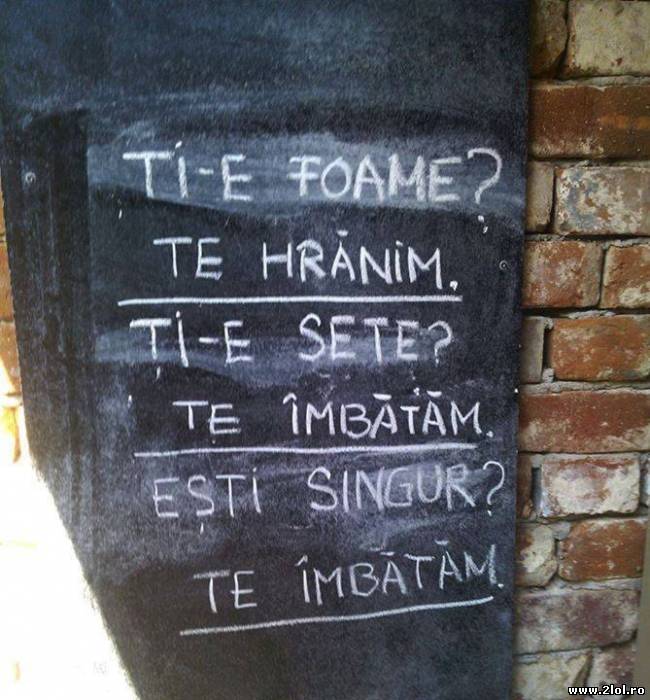 ȚI-E FOAME?
TE HRĂNIM.
ȚI-E SETE?
TE ÎMBĂTĂM.
EȘTI SINGUR?
TE ÎMBĂTĂM.
www.2lol.ro